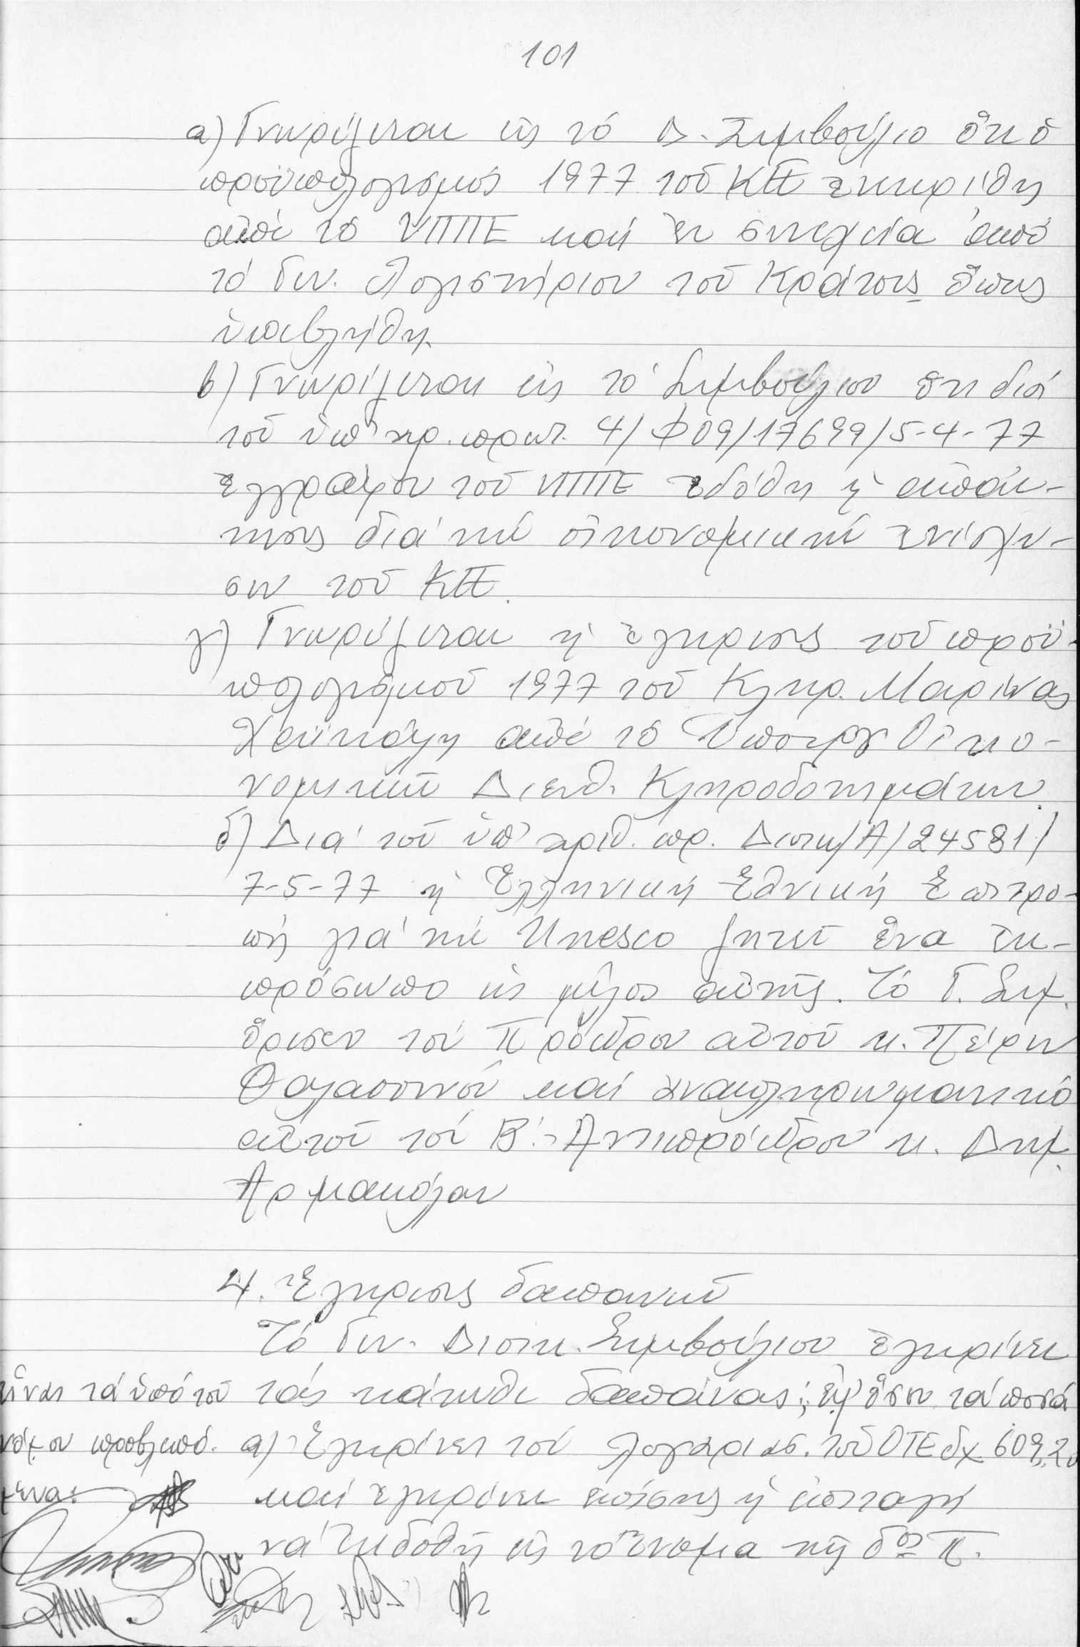 101
α) Γνωρίζεται εἰς τό Δ. Συμβούλιο ὅτι ὁ
προϋπολογισμός 1977 τοῦ ΚΠΕ ἐνεκρίθη
ἀπό τό ΥΠΠΕ καί ἐν συνεχεία ἀπό
τό Γεν. Λογιστήριον τοῦ Κράτους ὅπως
ὑπεβλήθη.
β) Γνωρίζεται εἰς τό Συμβούλιον ὅτι διά
τοῦ ὑπ' ἀρ. πρωτ. 4/Φ09/17699/5-4-77
ἐγγράφου τοῦ ΥΠΠΕ ἐδόθη ἡ ἀπάν-
τησις διά τήν οἰκονομικήν ἐνίσχυ-
σιν τοῦ ΚΠΕ.
γ) Γνωρίζεται ἡ ἔγκρισις τοῦ προϋ-
πολογισμοῦ 1977 τοῦ Κληρ. Μαρίνας
ἀπό τό Ὑπουργ Οἰκο-
νομικῶν Διευθ. Κληροδοτημάτων
δ) Διά τοῦ ὑπ' ἀριθ. πρ. Διοικ/Α/24581/
7-5-77 ἡ Ἑλληνική Ἐθνική Ἐπιτρο-
πή γιά τήν Unesco ζητεῖ ἕνα ἐκ-
πρόσωπο ὡς μέλος αὐτῆς. Τό Γ. Συμ.
ὅρισεν τόν Πρόεδρον αὐτοῦ κ. Πέρην
Θαλασσινόν καί ἀναπληρωματικό
αὐτοῦ τόν Β'. Ἀντιπρόεδρον κ. Δημ.
Ἀρμακόλαν
4. Ἔγκρισις δαπανῶν
Τό Γεν. Διοικ. Συμβούλιον ἐγκρίνει
τάς κάτωθι δαπάνας; ἐφ' ὅσον τά ποσά
εἶναι τά ὑπό τοῦ
νόμου προβλεπό-
μενα:
α) Ἐγκρίνει τόν λογαριασ. τοῦ ΟΤΕ δχ 609,20
καί ἐγκρίνει ἐπίσης ἡ ἐπιταγή
νά ἐκδοθῆ εἰς τό ὄνομα τῆς δος Π.